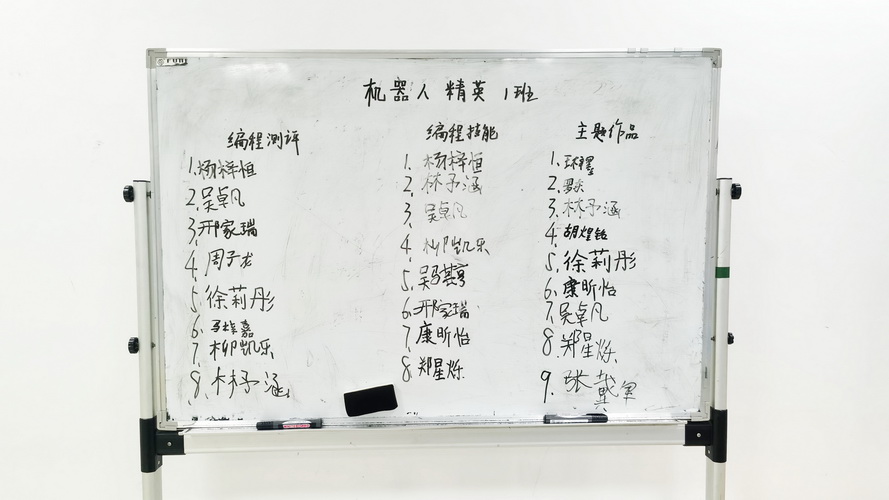 机器人 精英 1班
编程测评
1.杨梓恒
2.吴卓凡
3.邢家瑞
4.周子龙
5.徐莉彤
6.嘉
7.柳凯乐
8.林予涵
编程技能
1.杨梓恒
2.林予涵
3.吴卓凡
4.柳凯乐
5.吴
6.邢家瑞
7.康昕怡
8.郑星烁
主题作品
1.
2.
3.林予涵
4.胡煌
5.徐莉彤
6.康昕怡
7.吴卓凡
8.郑星烁
9.张戴军